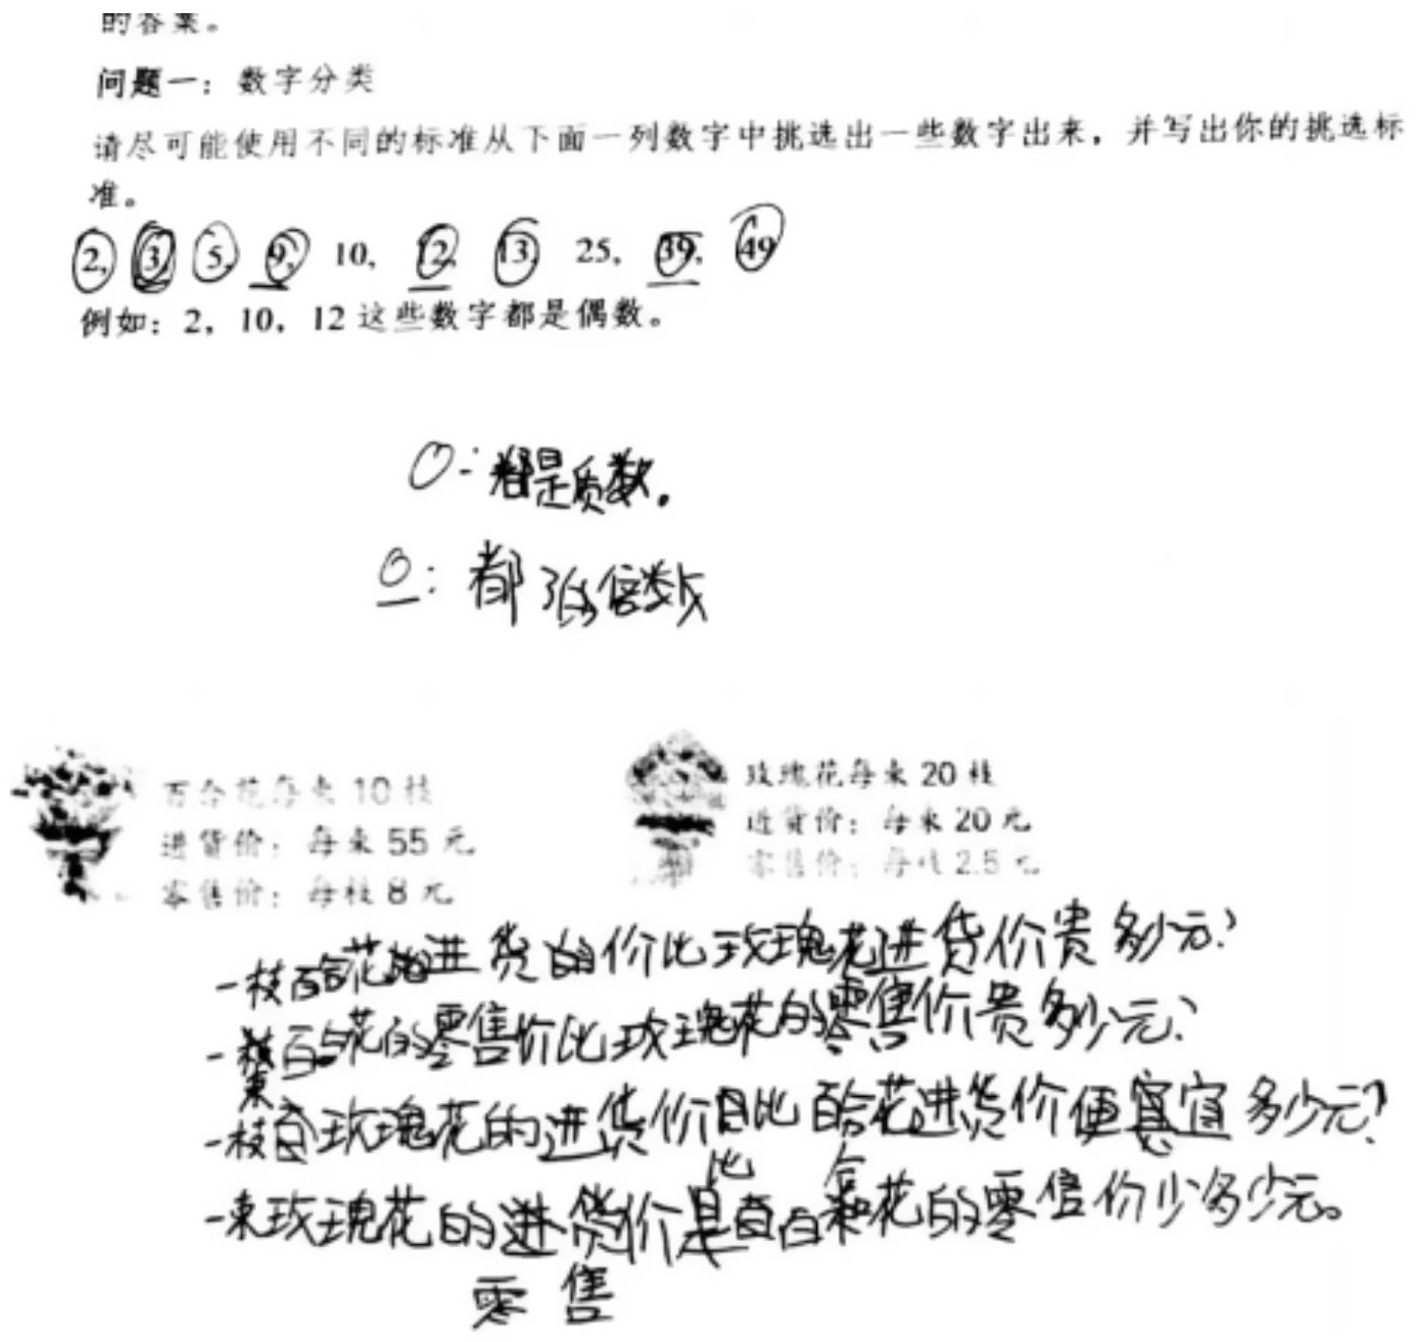 的答案。
问题一：数字分类
请尽可能使用不同的标准从下面一列数字中挑选出一些数字出来，并写出你的挑选标
准。
2, 3, 5, 9, 10, 12, 13, 25, 39, 49
例如：2，10，12 这些数字都是偶数。
○：都是质数。
○：都3的倍数
百合花每束 10 枝
进货价：每束 55 元
零售价：每枝 8 元
玫瑰花每束 20 枝
进货价：每束 20 元
零售价：每枝 2.5 元
一枝百合花进货的价比玫瑰花进货价贵多少元？
一束百合花的零售价比玫瑰花的零售价贵多少元？
一枝玫瑰花的进货价比百合花进货价便宜多少元？
一束玫瑰花的零售价比百合花的零售价少多少元。